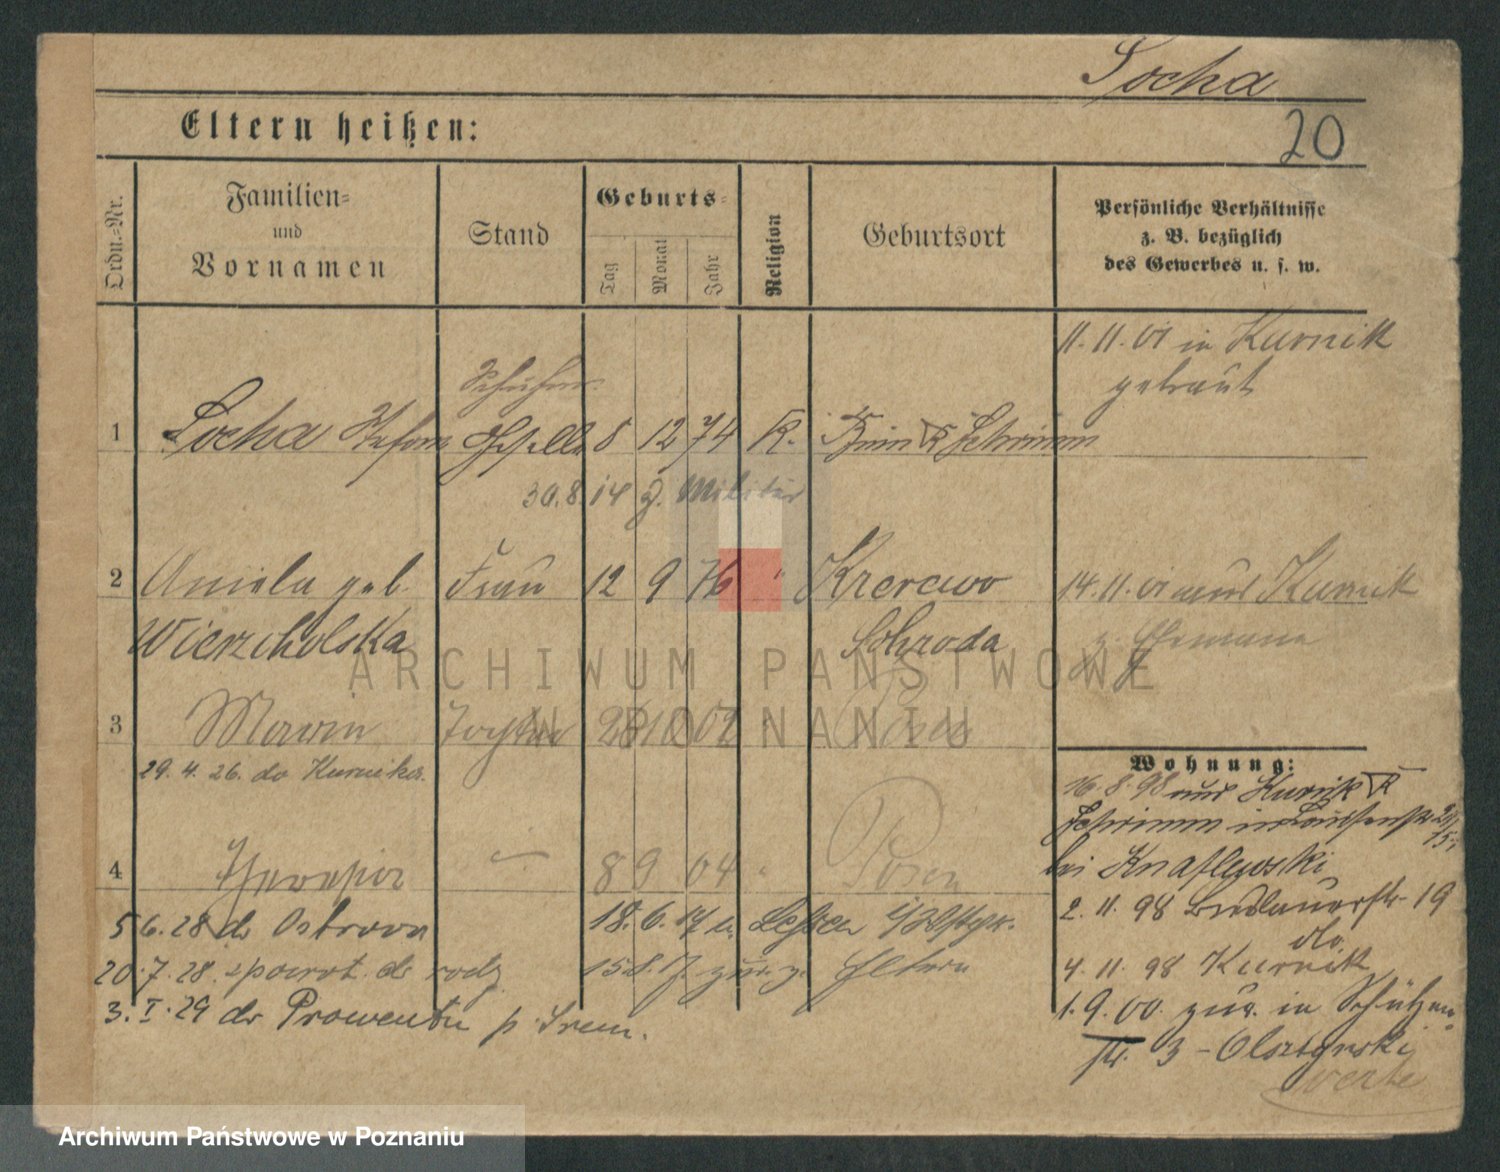 Socha
20
Eltern heißen:
Ordn.-Nr.
Familien-
und
Vornamen
Stand
Geburts-
Tag
Monat
Jahr
Religion
Geburtsort
Persönliche Verhältnisse
z. B. bezüglich
des Gewerbes u. s. w.
11. 11. 01 in Kurnik
getraut
1 Socha Stefan Geselle 8 12 74 K. Bnin Kr Schrimm
30.8.14 z. Militär
2 Aniela geb. Frau 12 9 76 " Krerowo
14. 11. 01 aus Kurnik
Wierzcholska Schroda
z. Ehemann
3 Marin 28 10 02 Posen
29. 4. 26. do Kurnika.
4 8 9 04 Posen
5 6. 28 do Ostrowa 18. 6. 17 n.
20. 7. 28. spowrot. do rodz. 15. 8. 17 zur. z. Eltern
3. I. 29 do Prowentu p. Srem.
Wohnung:
16. 8. 98 aus Kurnik Kr
Schrimm in
bei Knaflewski
2. 11. 98 Breslauerstr. 19
do.
4. 11. 98 Kurnik
1. 9. 00. zur. in Schützen-
str. 3 - Olsztynski
verte
ARCHIWUM PAŃSTWOWE
W POZNANIU
Archiwum Państwowe w Poznaniu